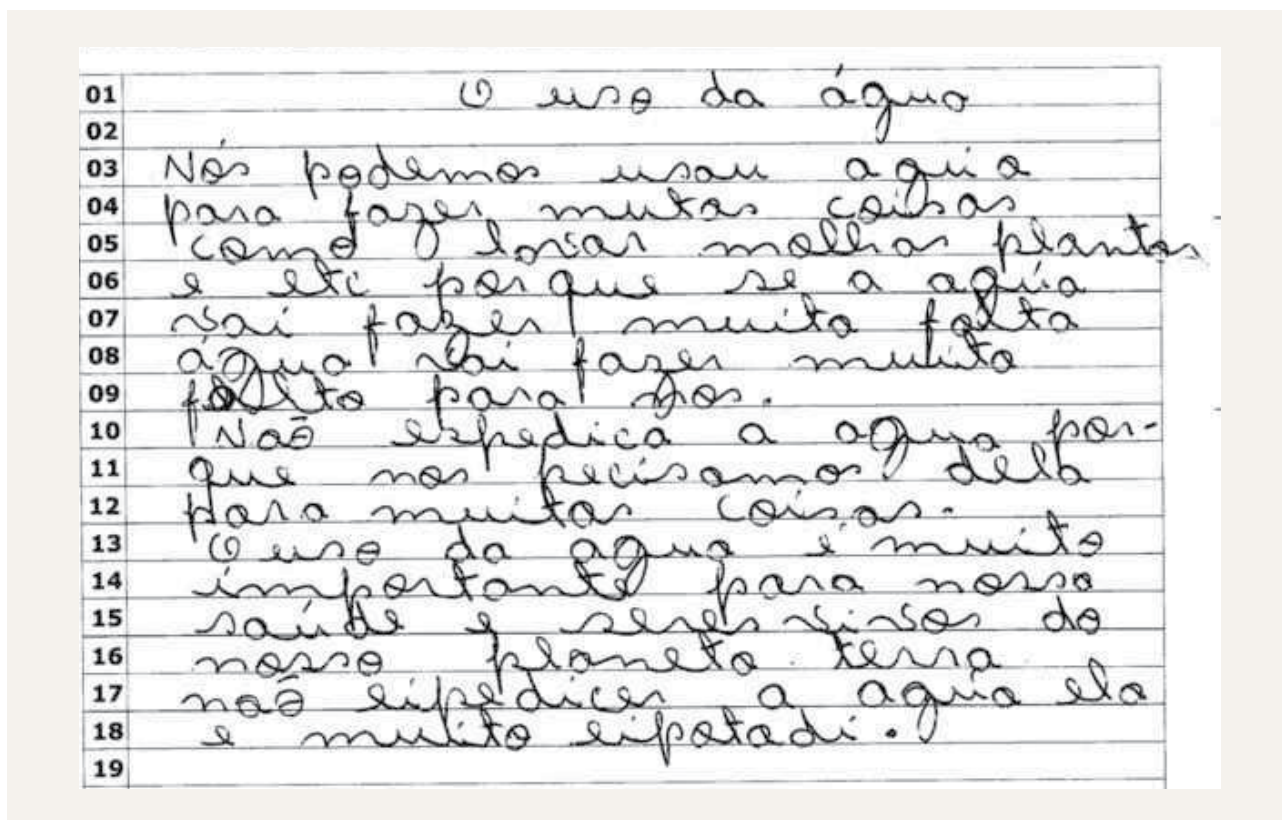 01 O uso da água
02
03 Nós podemos usar a aguia
04 para fazer mutas coisas
05 como lavar molhar plantas
06 e etc porque se a aguia
07 vai fazer muita falta
08 água vai fazer muluto
09 falta para nos.
10 Naõ espedica a agua por-
11 que nos pecisamos dela
12 para muitas coisas.
13 O uso da agua é muito
14 importante para nossa
15 saúde e seres vivos do
16 nosso planeta terra
17 naõ eipedicer a aguia ela
18 e muluto eipotadi.
19